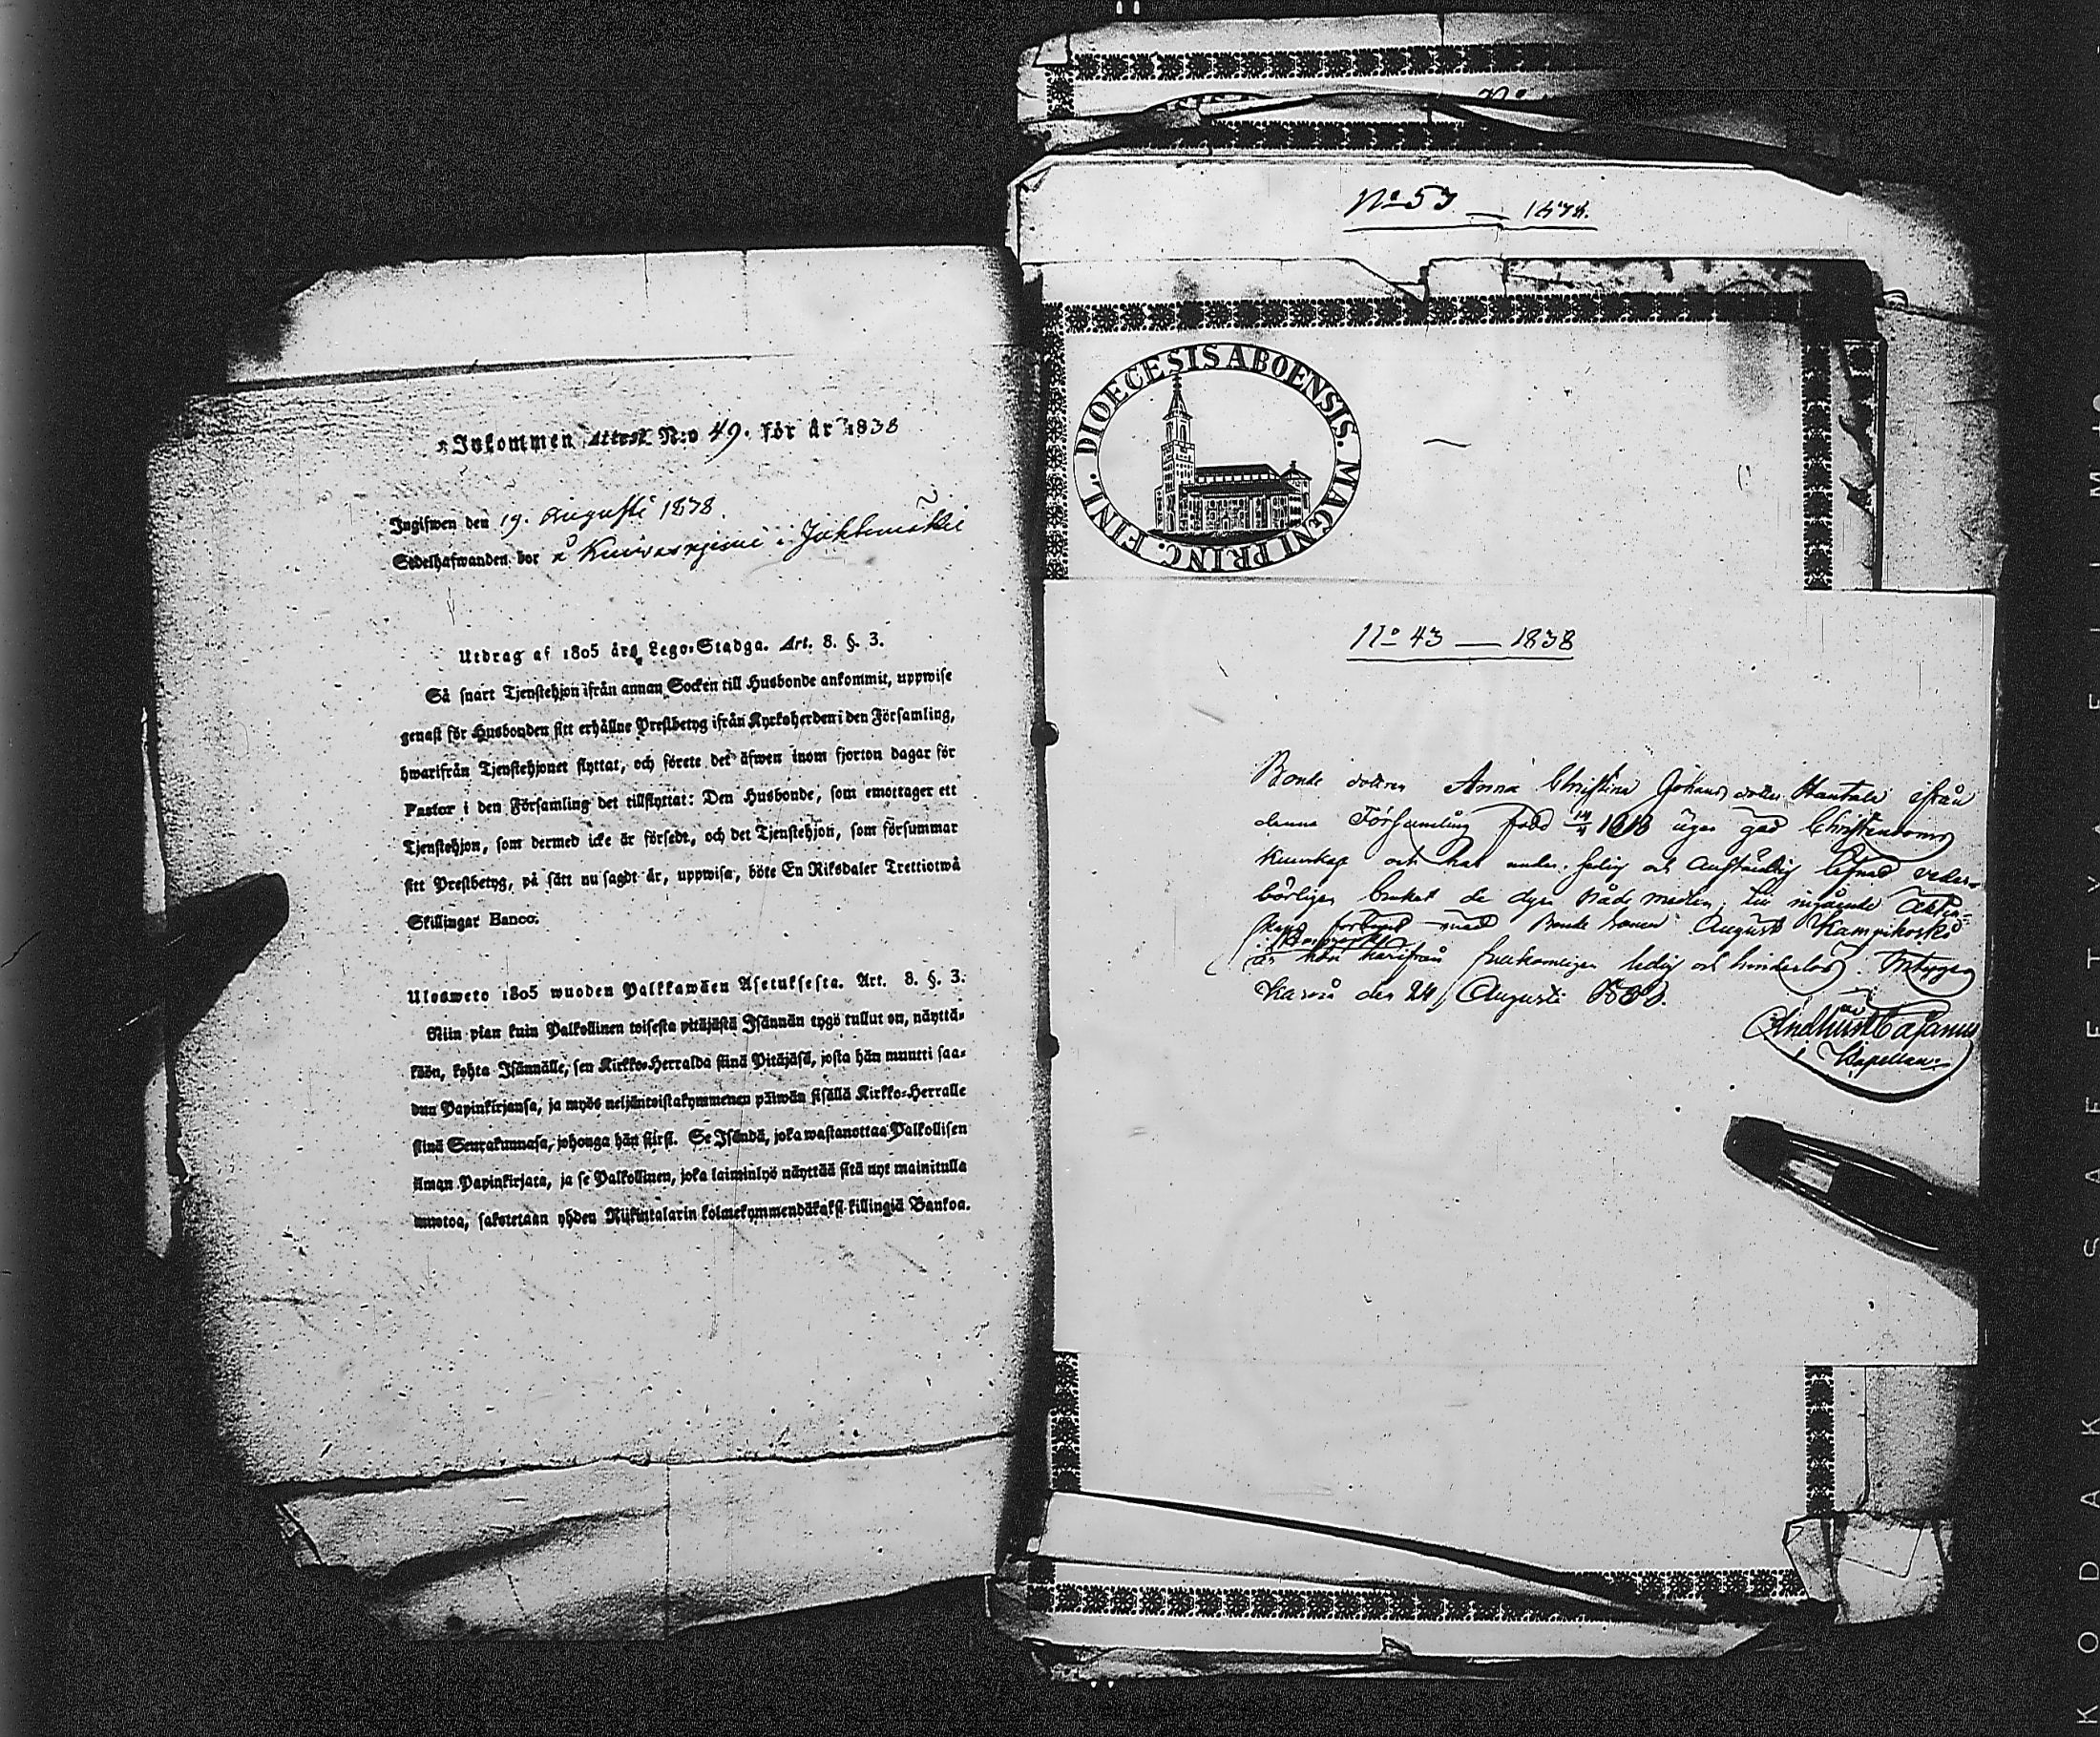 Inkommen Attest N:o 49. för år 1838
Ingifwen den 19. Augusti 1838.
Sedelhafwanden bor å i
Utdrag af 1805 års Lego-Stadga. Art. 8. §. 3.
Så snart Tjenstehjon ifrån annan Socken till Husbonde ankommit, uppwise
genast för Husbonden sitt erhållne Prestbetyg ifrån Kyrkoherden i den Församling,
hwarifrån Tjenstehjonet flyttat, och förete det äfwen inom fjorton dagar för
Pastor i den Församling det tillflyttat: Den Husbonde, som emottager ett
Tjenstehjon, som dermed icke är försedt, och det Tjenstehjon, som försummar
sitt Prestbetyg, på sätt nu sagdt är, uppwisa, böte En Riksdaler Trettiotwå
Skillingar Banco.
Ulosweto 1805 wuoden Palkkawäen Asetuksesta. Art. 8. §. 3.
Niin pian kuin Palkollinen toisesta pitäjästä Isännän tygö tullut on, näyttä-
köön, kohta Isännälle, sen Kirkko-Herralda siinä Pitäjäsä, josta hän muutti saa-
dun Papinkirjansa, ja myös neljäntoistakymmenen päiwän sisällä Kirkko-Herralle
siinä Seurakunnasa, johonga hän siirsi. Se Isändä, joka wastanottaa Palkollisen
ilman Papinkirjata, ja se Palkollinen, joka laiminlyö näyttää sitä nyt mainitulla
muotoa, sakotetaan yhden Riikintalarin kolmekymmendäkaksi killingiä Bankoa.
N:o 57 — 1838.
DIOECESIS ABOENSIS. MAGNI PRINC. FINL.
N:o 43 — 1838
Bonde dottren Anna Christina Johans dotter ifrån
denna Församling född 1818 äger god Christendoms
kunskap och har under. ärlig och anständig lefnad veder-
börligen brukat de dyra Nåde medlen; till ingående
förbund med Bonde sonen August Kampikoski
är hon härifrån fullkomligen ledig och hinderlös. Intygas
den 24 Augusti 1838.
Cajanus
Kapellan.
KODAK SAFETY FILM